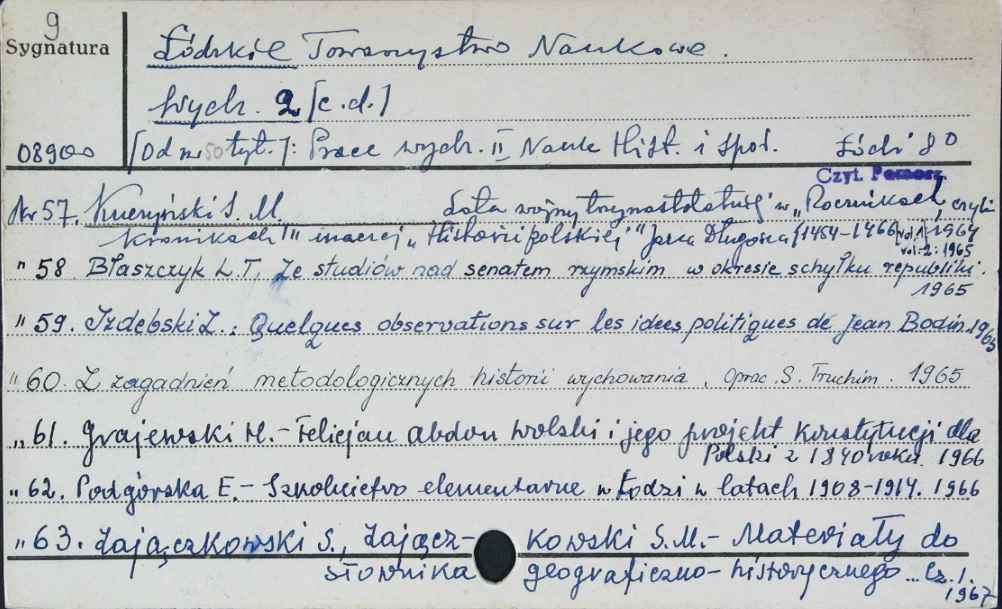 9
Sygnatura
Łódzkie Towarzystwo Naukowe.
Wydz. 2 [c.d.]
08900
[Od nr 50 tyt.]: Prace wydz. II Nauk Hist. i Społ. Łódź 80
Czyt. Pomocn.
Nr 57. Kuczyński S. M. Lata wojny trzynastoletniej w "Rocznikach, czyli
Kronikach" inaczej "Historii polskiej" Jana Długosza (1454-1466) vol. 1 1964
vol. 2: 1965
" 58 Błaszczyk L. T. Ze studiów nad senatem rzymskim w okresie schyłku republiki.
1965
" 59. Izdebski Z.: Quelques observations sur les idees politiques de Jean Bodin 1965
" 60. Z zagadnień metodologicznych historii wychowania, oprac. S. Truchim. 1965
" 61. Grajewski H. - Felicjan Abdon Wolski i jego projekt konstytucji dla
Polski z 1840 roku. 1966
" 62. Podgórska E. - Szkolnictwo elementarne w Łodzi w latach 1908-1914. 1966
" 63. Zajączkowski S., Zającz- kowski S.M. - Materiały do
słownika geograficzno-historycznego ... Cz. 1.
1967